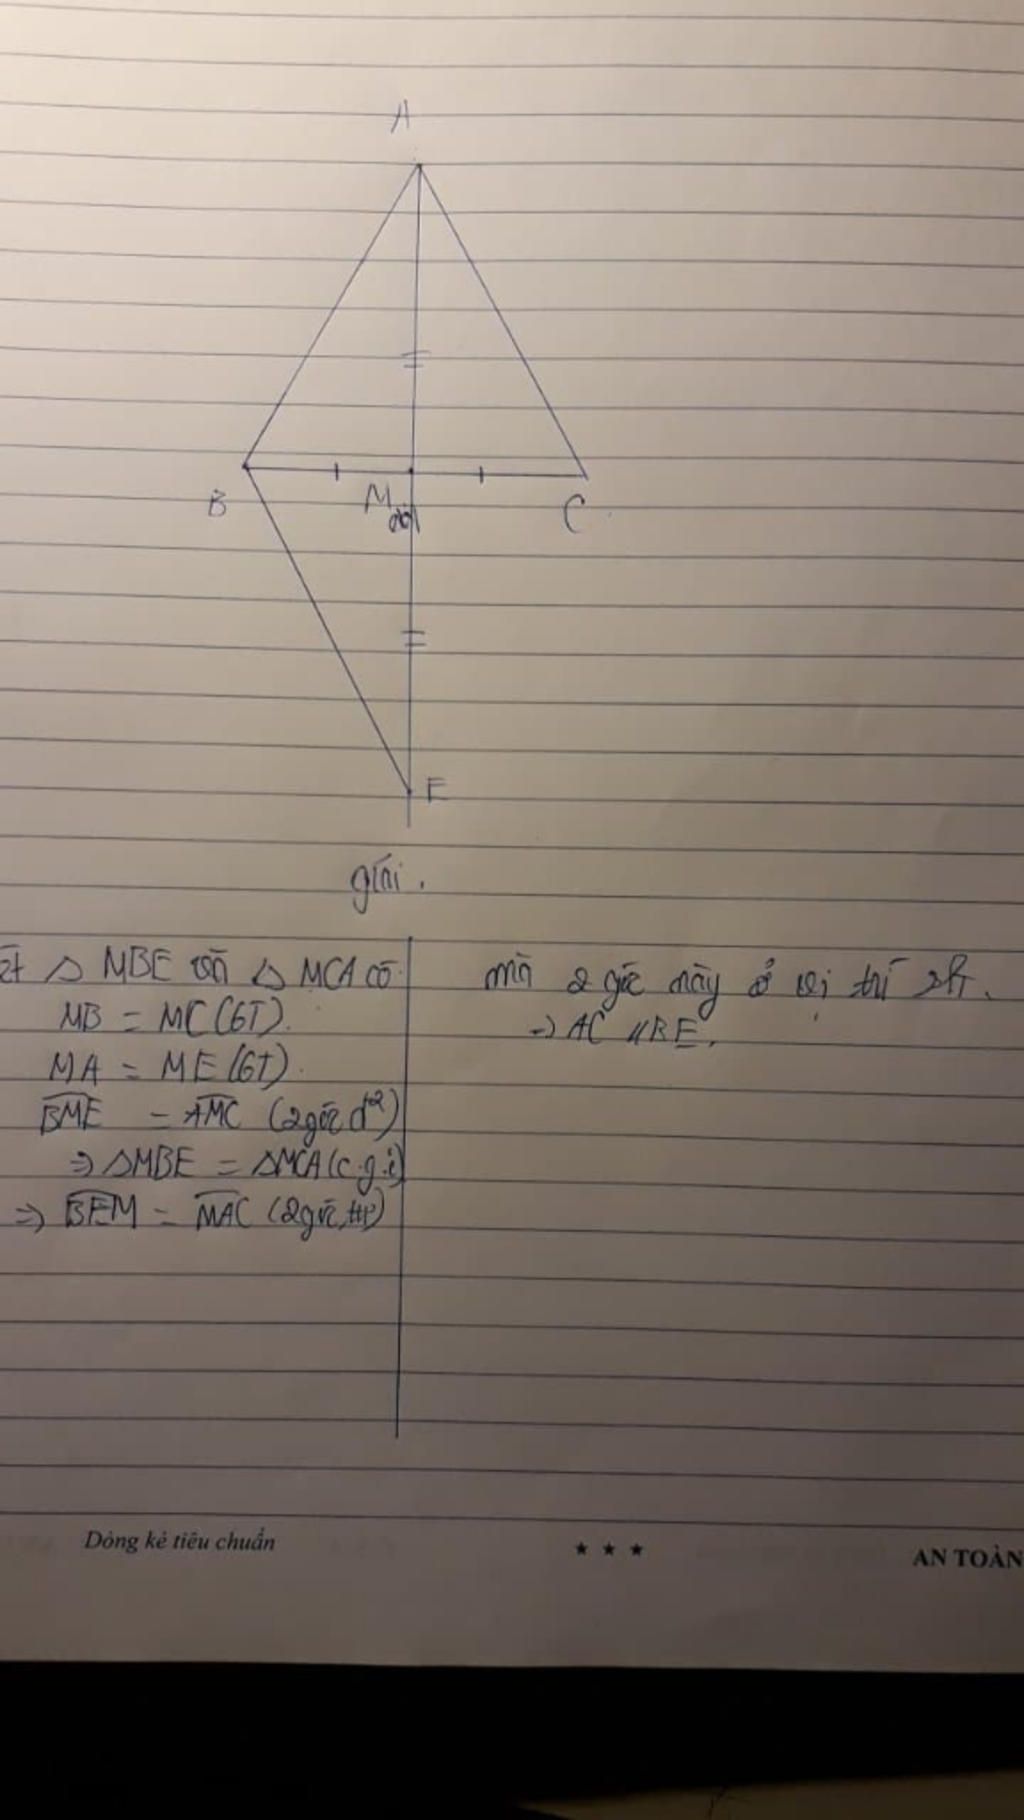 A
B
M
C
E
giải.
Xét △ MBE và △ MCA có
MB = MC (GT).
MA = ME (GT).
BME = AMC (2 góc đ²)
⇒ △MBE = △MCA (c.g.c)
⇒ BEM = MAC (2 góc tư)
mà 2 góc này ở vị trí slt.
⇒ AC // BE.
Dòng kẻ tiêu chuẩn
★ ★ ★
AN TOÀN